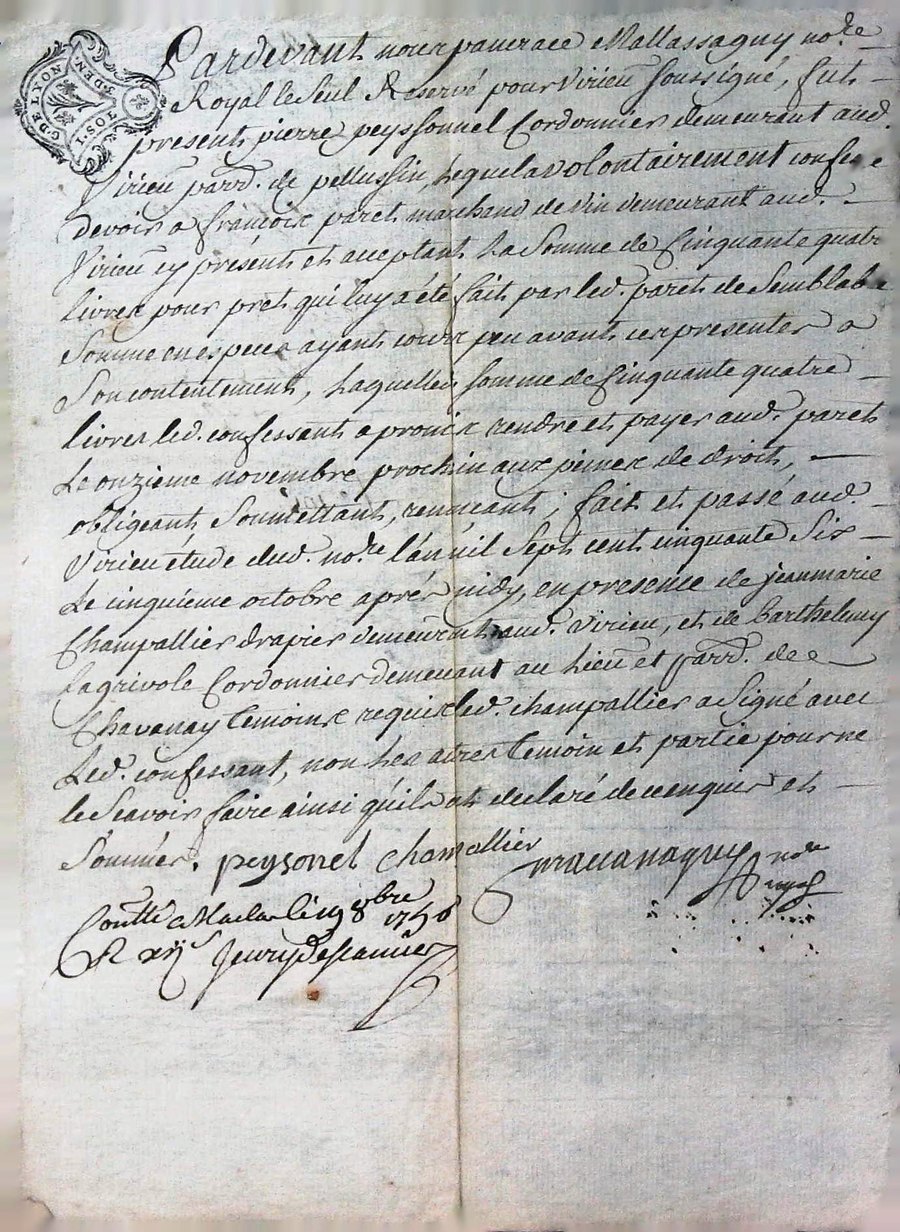 G. DE LYON
1. SOL. 3. DEN.
Pardevant nous pancrace Mallassagny nore
Royal le seul Reservé pour Virieu soussigné, fut
present pierre peyssonnel Cordonnier demeurant aud.
Virieu parr. de pellussin, Lequel a volontairement confessé
devoir a françois paret marchand de vin demeurant aud.
Virieu cy present et acceptant La Somme de Cinquante quatre
livres pour pret qui luy a été fait par led. paret de Semblable
Somme en especes ayant cours peu avant ces presentes a
Son contentement, Laquelle somme de Cinquante quatre
livres led. confessant a promis rendre et payer aud. paret
Le onzieme novembre prochin aux peines de droit,
obligeant, Soumettant, renonceant; fait et passé aud
Virieu étude dud. nore l'an mil Sept cent cinquante Six
Le cinquieme octobre aprés midy, en presence de jeanmarie
Champallier drapier demeurent aud. Virieu, et de Barthelemy
Lagrivole Cordonnier demeurant au Lieu et parr. de
Chavanay temoins requis led. champallier a Signé avec
Led. confessant, non Les autres temoin et partie pour ne
le Scavoir faire ainsi qu'ils ont declaré de ce enquis et
Sommés. peysonel champallier
nore
Contlé a Maclas le 8bre 1756
R